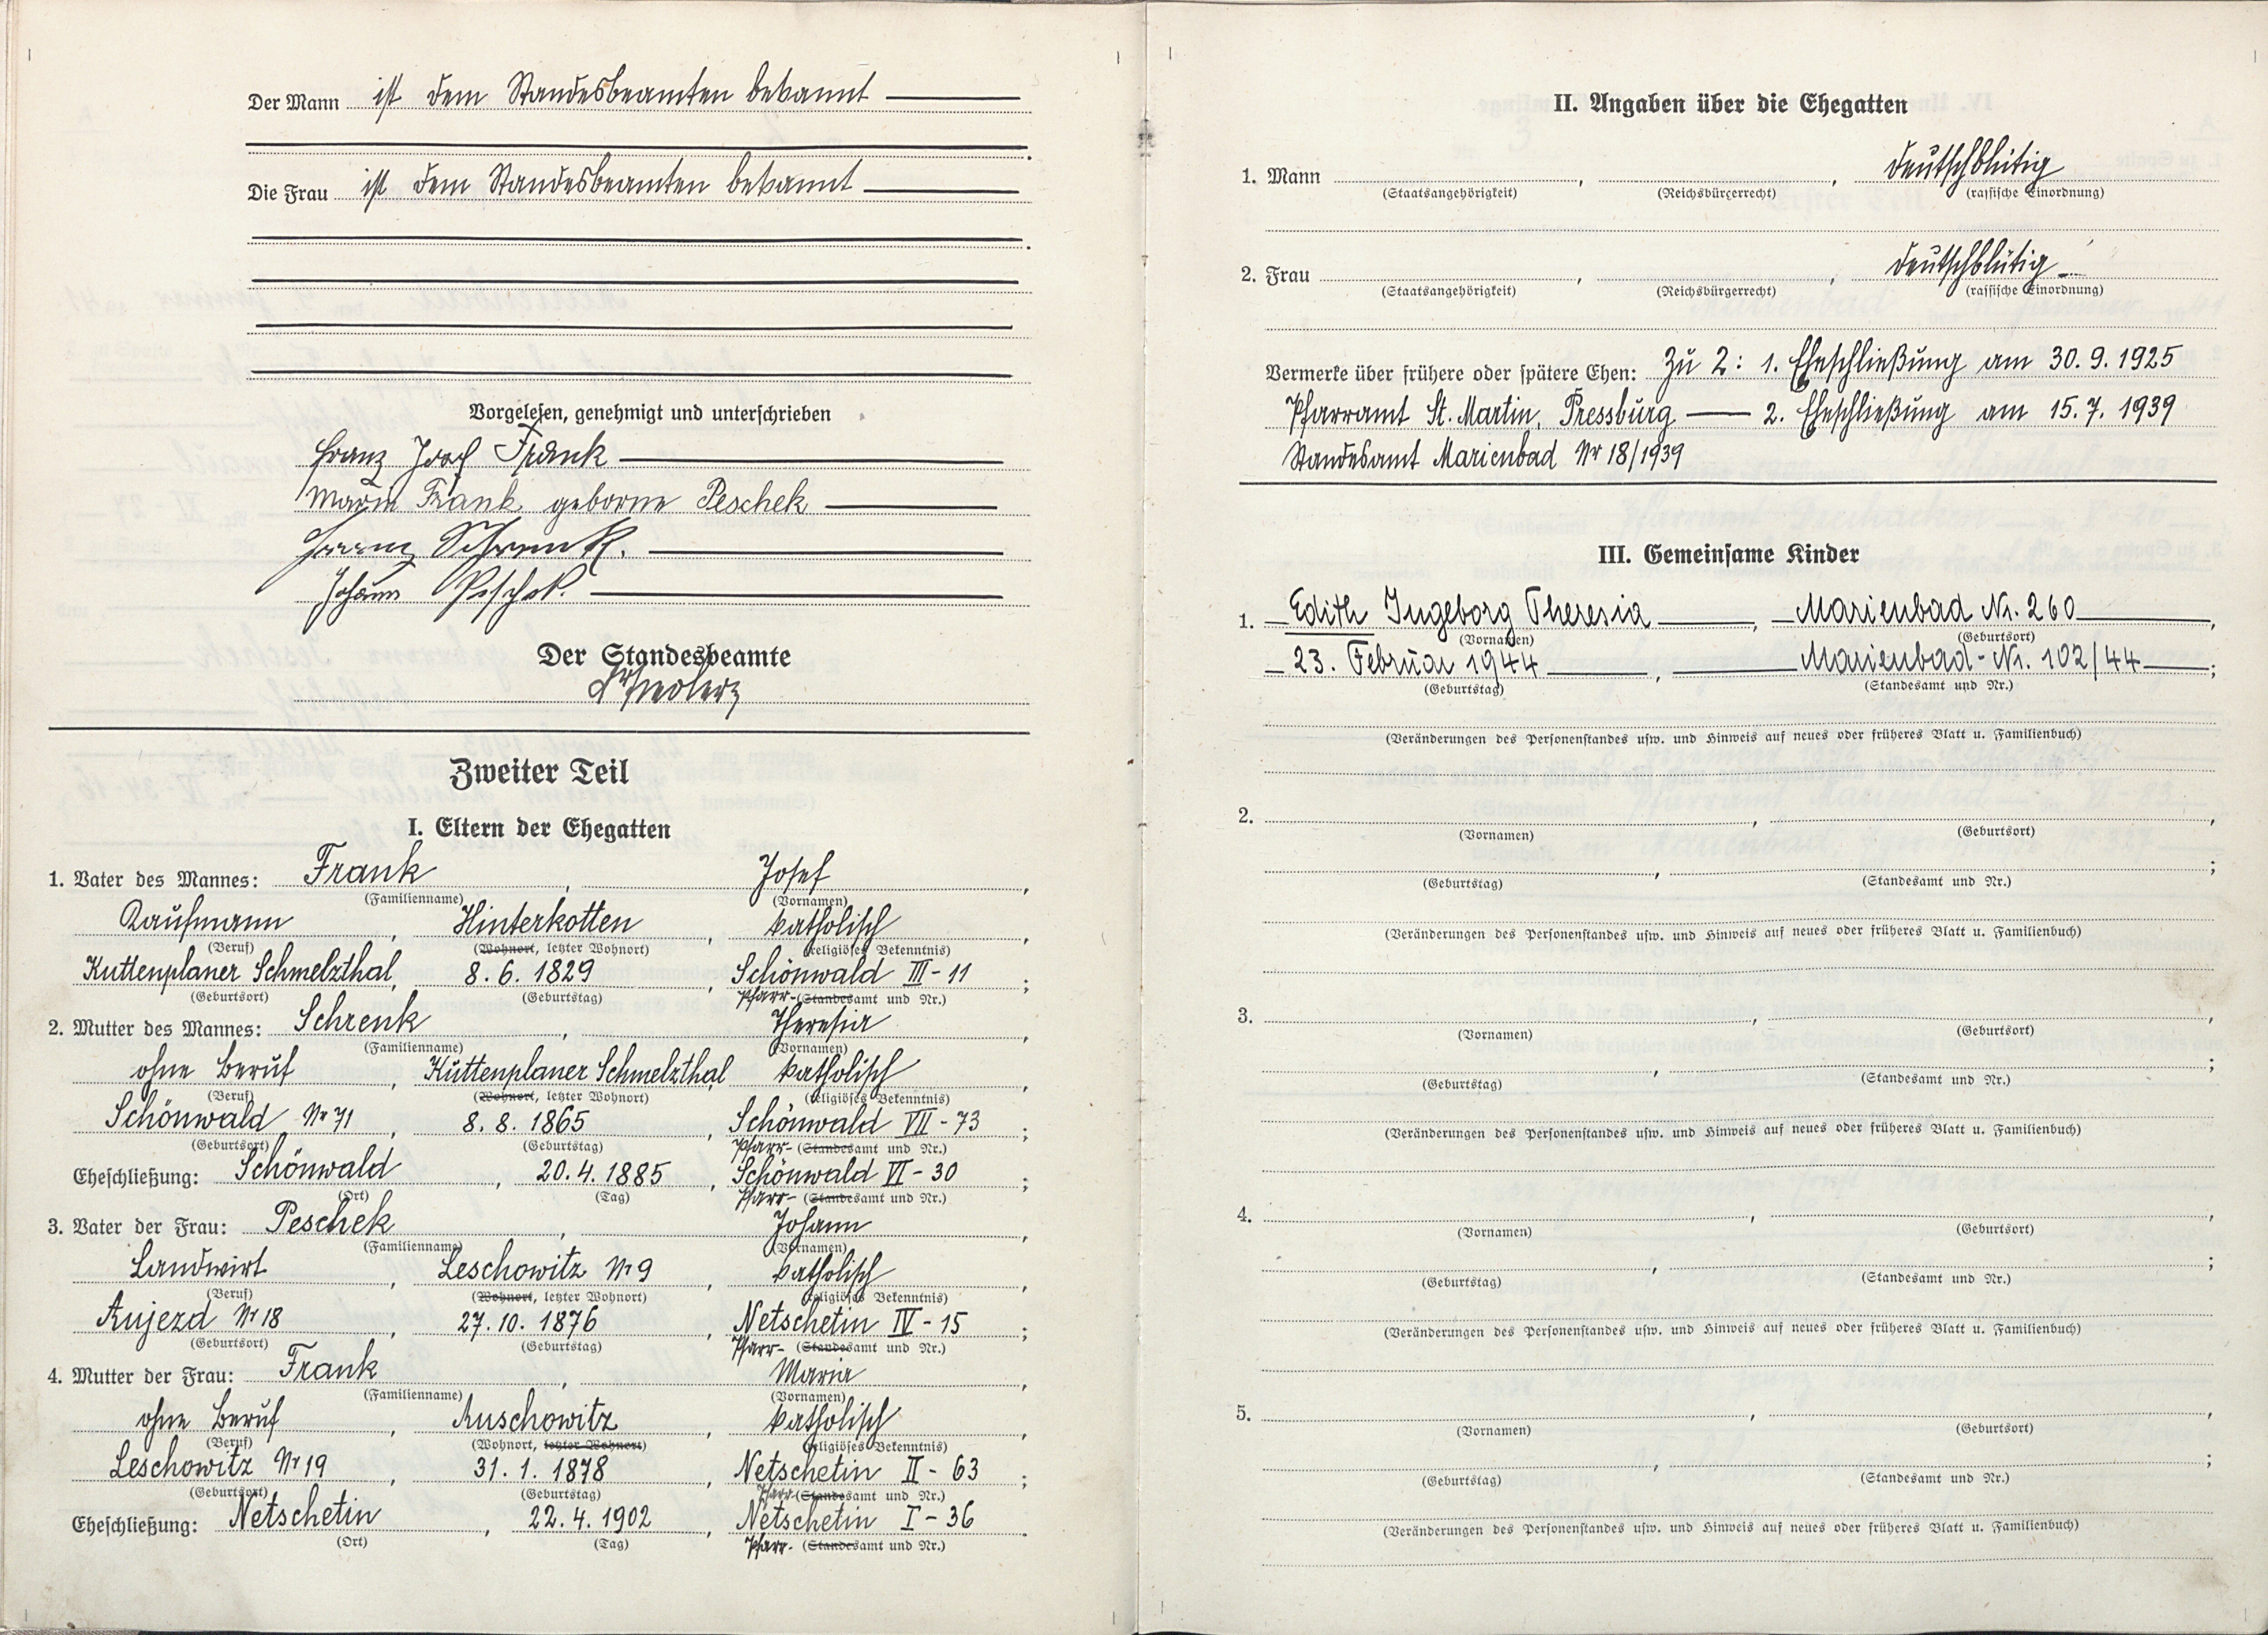 Der Mann ist dem Standesbeamten bekannt
Die Frau ist dem Standesbeamten bekannt
Vorgelesen, genehmigt und unterschrieben
Franz Josef Frank
Maria Frank geborne Peschek
Franz Schrenk.
Johann Peschek.
Der Standesbeamte
Zweiter Teil
I. Eltern der Ehegatten
1. Vater des Mannes: Frank, Josef,
(Familienname) (Vornamen)
Kaufmann, Hinterkotten, katholisch,
(Beruf) (Wohnort, letzter Wohnort) (religiöses Bekenntnis)
Kuttenplaner Schmelzthal, 8. 6. 1829, Schönwald III - 11;
(Geburtsort) (Geburtstag) Pfarr- (Standesamt und Nr.)
2. Mutter des Mannes: Schrenk, Theresia,
(Familienname) (Vornamen)
ohne Beruf, Kuttenplaner Schmelzthal, katholisch,
(Beruf) (Wohnort, letzter Wohnort) (religiöses Bekenntnis)
Schönwald Nr 71, 8. 8. 1865, Schönwald VII - 73;
(Geburtsort) (Geburtstag) Pfarr- (Standesamt und Nr.)
Eheschließung: Schönwald, 20. 4. 1885, Schönwald VI - 30;
(Ort) (Tag) Pfarr- (Standesamt und Nr.)
3. Vater der Frau: Peschek, Johann,
(Familienname) (Vornamen)
Landwirt, Leschowitz Nr 9, katholisch,
(Beruf) (Wohnort, letzter Wohnort) (religiöses Bekenntnis)
Aujezd Nr 18, 27. 10. 1876, Netschetin IV - 15;
(Geburtsort) (Geburtstag) Pfarr- (Standesamt und Nr.)
4. Mutter der Frau: Frank, Maria,
(Familienname) (Vornamen)
ohne Beruf, Auschowitz, katholisch,
(Beruf) (Wohnort, letzter Wohnort) (religiöses Bekenntnis)
Leschowitz Nr 19, 31. 1. 1878, Netschetin II - 63;
(Geburtsort) (Geburtstag) Pfarr- (Standesamt und Nr.)
Eheschließung: Netschetin, 22. 4. 1902, Netschetin I - 36.
(Ort) (Tag) Pfarr- (Standesamt und Nr.)
II. Angaben über die Ehegatten
1. Mann , , deutschblütig
(Staatsangehörigkeit) (Reichsbürgerrecht) (rassische Einordnung)
2. Frau , , deutschblütig
(Staatsangehörigkeit) (Reichsbürgerrecht) (rassische Einordnung)
Vermerke über frühere oder spätere Ehen: Zu 2: 1. Eheschließung am 30. 9. 1925
Pfarramt St. Martin, Pressburg — 2. Eheschließung am 15. 7. 1939
Standesamt Marienbad Nr 18/1939
III. Gemeinsame Kinder
1. Edith Ingeborg Theresia, Marienbad Nr. 260,
(Vornamen) (Geburtsort)
23. Februar 1944, Marienbad - Nr. 102/44;
(Geburtstag) (Standesamt und Nr.)
(Veränderungen des Personenstandes usw. und Hinweis auf neues oder früheres Blatt u. Familienbuch)
2. , ,
(Vornamen) (Geburtsort)
, ;
(Geburtstag) (Standesamt und Nr.)
(Veränderungen des Personenstandes usw. und Hinweis auf neues oder früheres Blatt u. Familienbuch)
3. , ,
(Vornamen) (Geburtsort)
, ;
(Geburtstag) (Standesamt und Nr.)
(Veränderungen des Personenstandes usw. und Hinweis auf neues oder früheres Blatt u. Familienbuch)
4. , ,
(Vornamen) (Geburtsort)
, ;
(Geburtstag) (Standesamt und Nr.)
(Veränderungen des Personenstandes usw. und Hinweis auf neues oder früheres Blatt u. Familienbuch)
5. , ,
(Vornamen) (Geburtsort)
, ;
(Geburtstag) (Standesamt und Nr.)
(Veränderungen des Personenstandes usw. und Hinweis auf neues oder früheres Blatt u. Familienbuch)